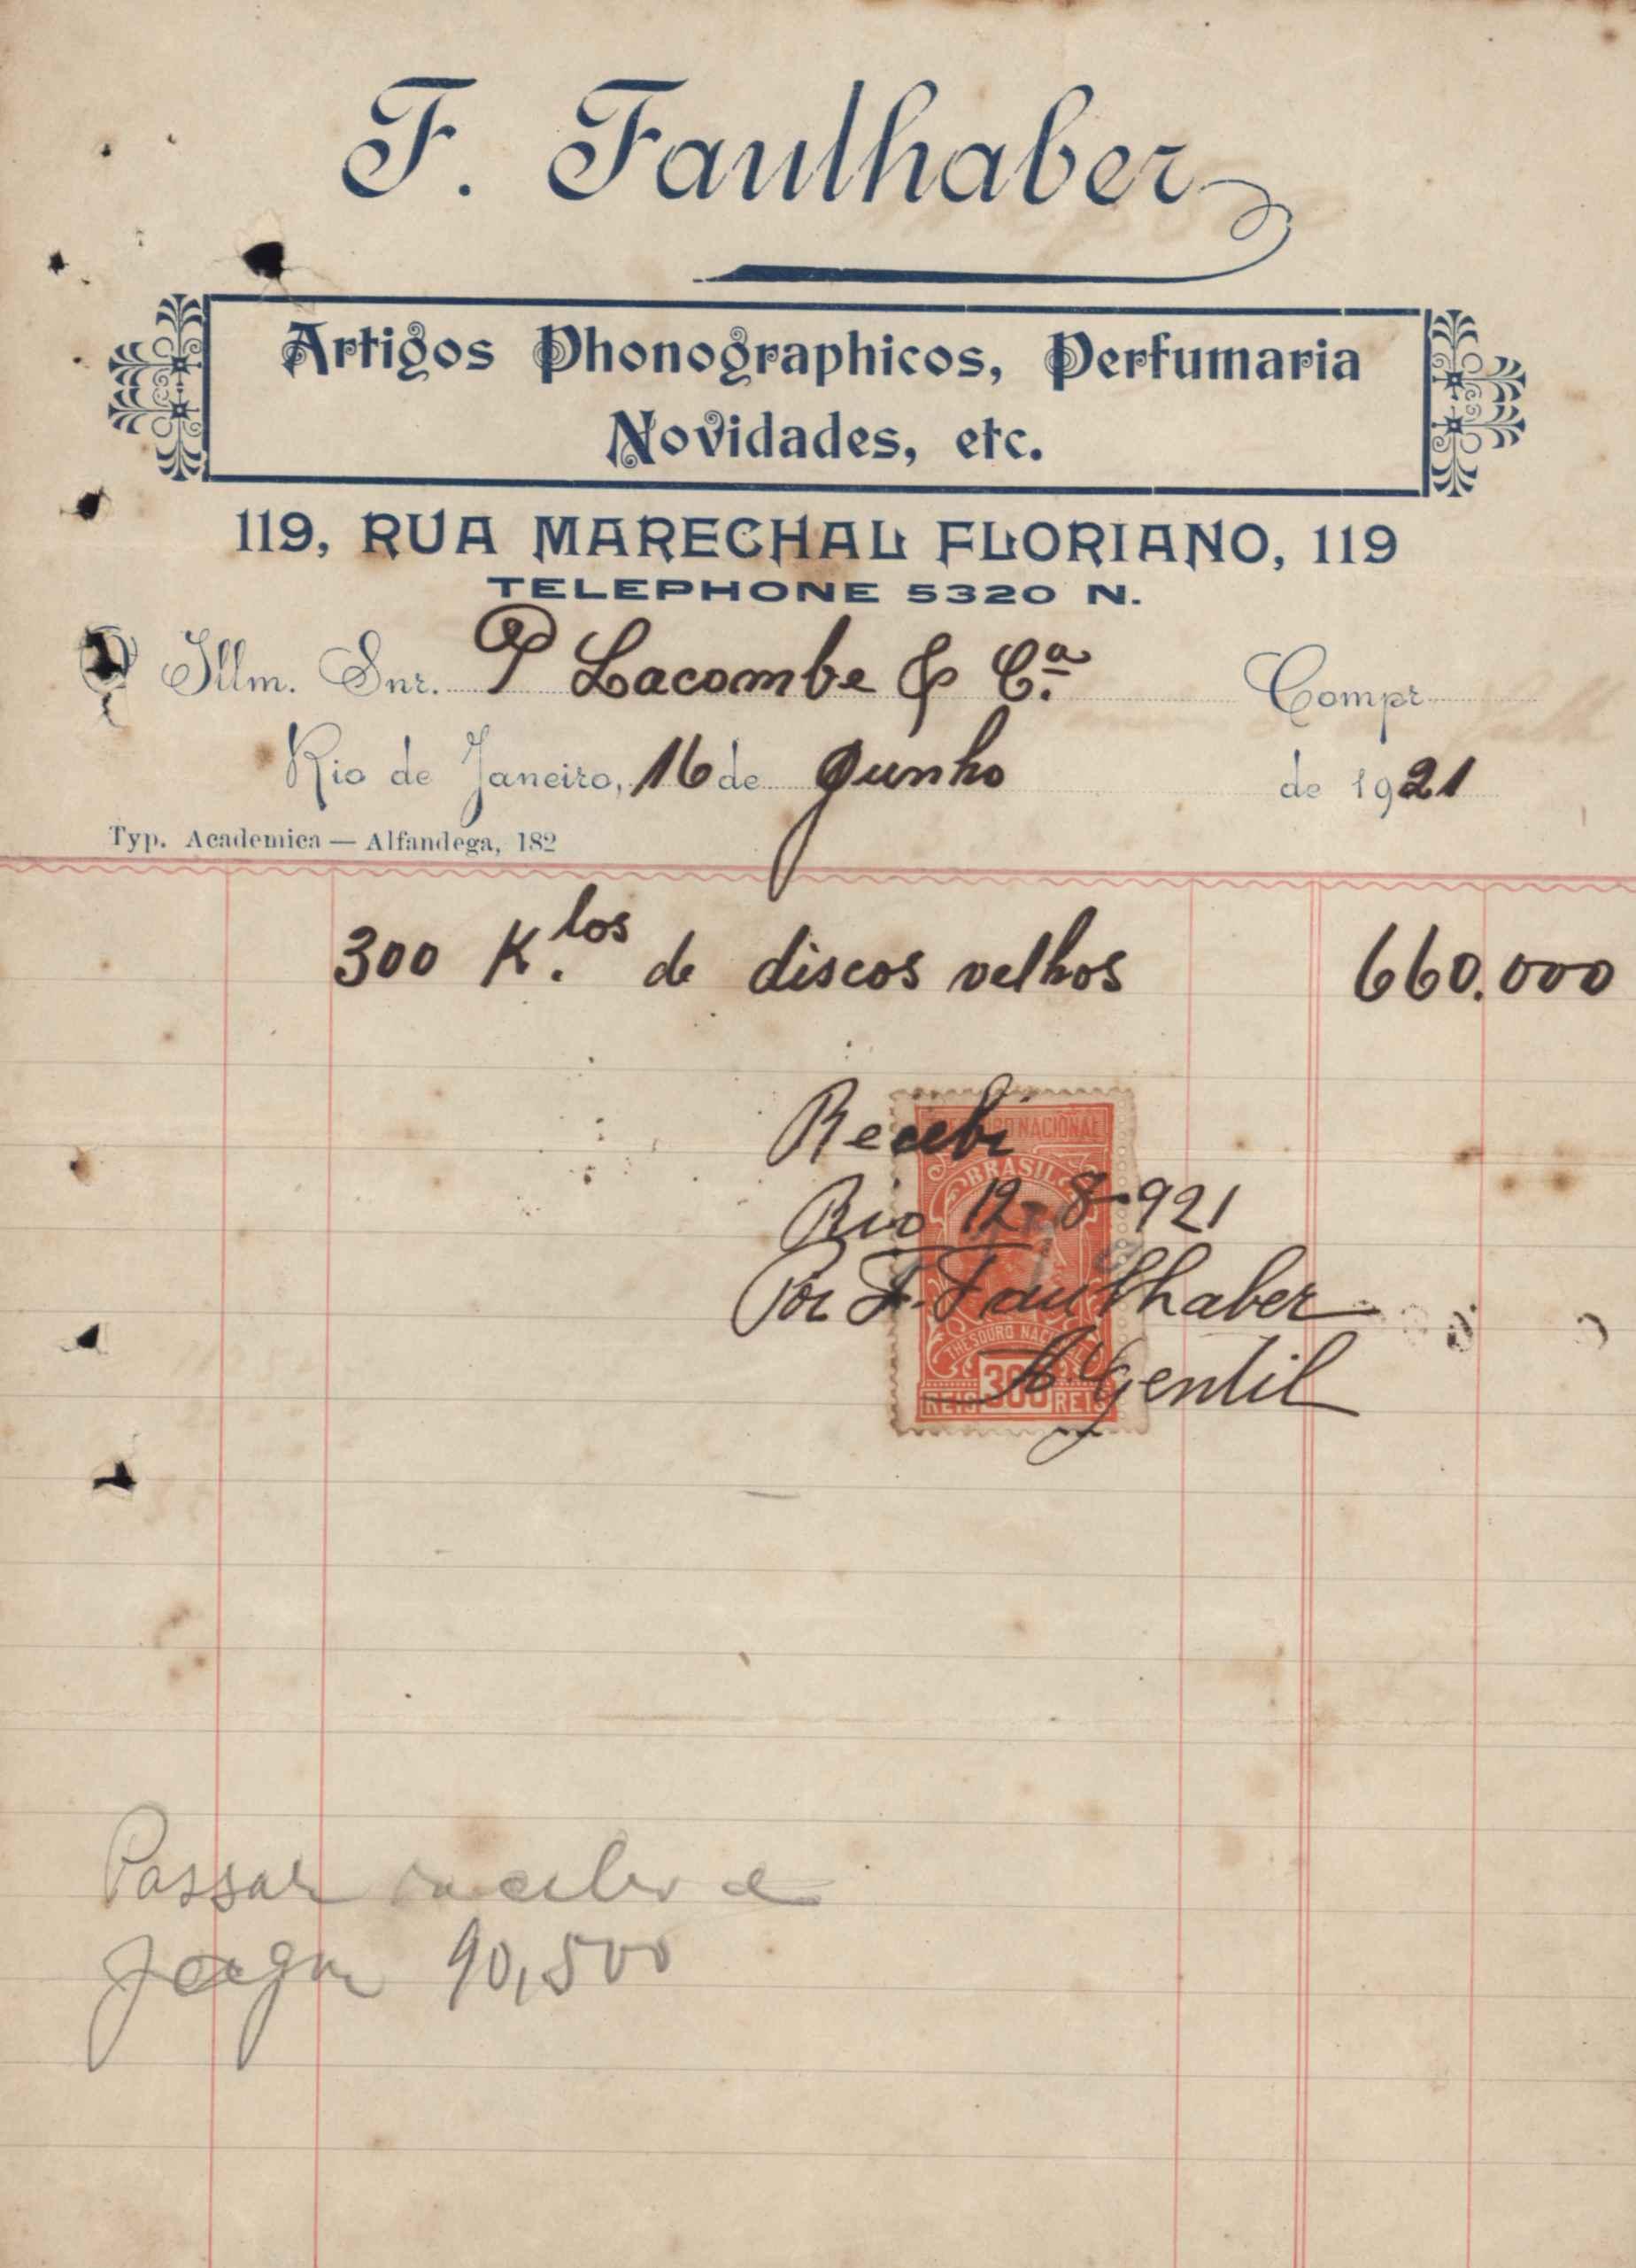 F. Faulhaber
Artigos Phonographicos, Perfumaria
Novidades, etc.
119, RUA MARECHAL FLORIANO, 119
TELEPHONE 5320 N.
O Illm. Snr. P Lacombe & Cª. Compr
Rio de Janeiro, 16 de Junho de 1921
Typ. Academica — Alfandega, 182
300 K.los de discos velhos 660.000
Recebi
NACIONAL
BRASIL
Rio 12-8-921
Por F. Faulhaber
THESOURO NACIONAL
A Gentil
REIS 300 REIS
Passar recebo e
90,500